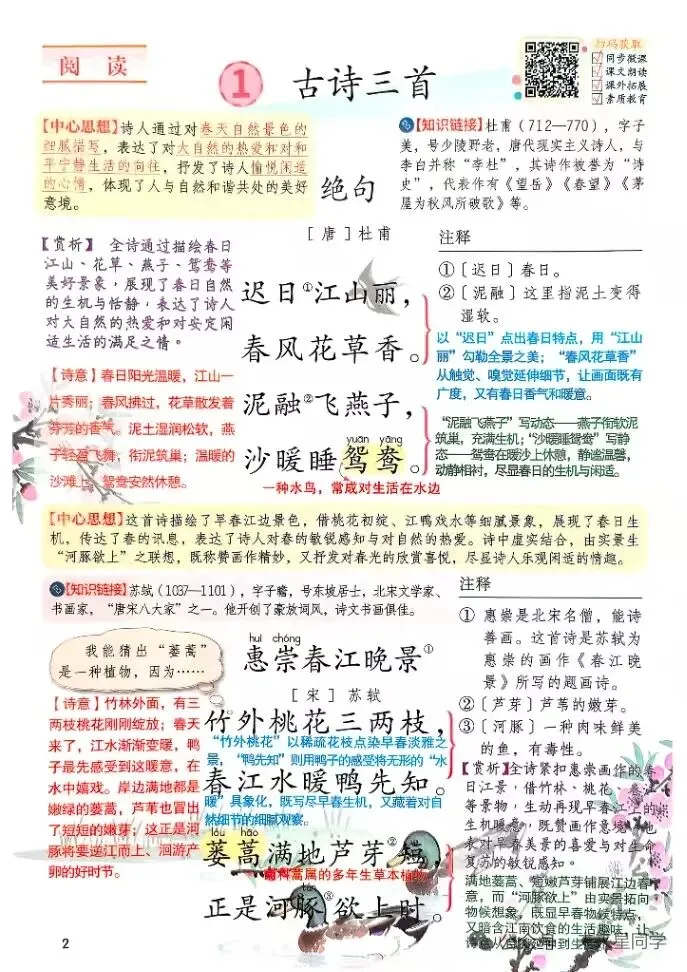 阅 读
扫码获取
同步微课
课文朗读
课外拓展
素质教育
1 古诗三首
【中心思想】诗人通过对春天自然景色的
细腻描写，表达了对大自然的热爱和对和
平宁静生活的向往，抒发了诗人愉悦闲适
的心情，体现了人与自然和谐共处的美好
意境。
【知识链接】杜甫（712—770），字子
美，号少陵野老，唐代现实主义诗人，与
李白并称“李杜”，其诗作被誉为“诗
史”，代表作有《望岳》《春望》《茅
屋为秋风所破歌》等。
绝句
［唐］杜甫
【赏析】 全诗通过描绘春日
江山、花草、燕子、鸳鸯等
美好景象，展现了春日自然
的生机与恬静，表达了诗人
对大自然的热爱和对安定闲
适生活的满足之情。
【诗意】春日阳光温暖，江山一
片秀丽；春风拂过，花草散发着
芬芳的香气。泥土湿润松软，燕
子轻盈飞舞，衔泥筑巢；温暖的
沙滩上，鸳鸯安然休憩。
迟日①江山丽，
春风花草香。
泥融②飞燕子，
yuān yāng
沙暖睡鸳鸯。
一种水鸟，常成对生活在水边
注释
①〔迟日〕春日。
②〔泥融〕这里指泥土变得
湿软。
以“迟日”点出春日特点，用“江山
丽”勾勒全景之美；“春风花草香”
从触觉、嗅觉延伸细节，让画面既有
广度，又有春日香气和暖意。
“泥融飞燕子”写动态——燕子衔软泥
筑巢，充满生机；“沙暖睡鸳鸯”写静
态——鸳鸯在暖沙上休憩，静谧温馨，
动静相衬，尽显春日的生机与闲适。
【中心思想】这首诗描绘了早春江边景色，借桃花初绽、江鸭戏水等细腻景象，展现了春日生
机，传达了春的讯息，表达了诗人对春的敏锐感知与对自然的热爱。诗中虚实结合，由实景生
“河豚欲上”之联想，既称赞画作精妙，又抒发对春光的欣赏喜悦，尽显诗人乐观闲适的情趣。
【知识链接】苏轼（1037—1101），字子瞻，号东坡居士，北宋文学家、
书画家，“唐宋八大家”之一。他开创了豪放词风，诗文书画俱佳。
我能猜出“蒌蒿”
是一种植物，因为……
huì chóng
惠崇春江晚景①
［宋］苏轼
【诗意】竹林外面，有三
两枝桃花刚刚绽放；春天
来了，江水渐渐变暖，鸭
子最先感受到这暖意，在
水中嬉戏。岸边满地都是
嫩绿的蒌蒿，芦苇也冒出
了短短的嫩芽；这正是河
豚将要逆江而上、洄游产
卵的好时节。
竹外桃花三两枝，
“竹外桃花”以稀疏花枝点染早春淡雅之
景，“鸭先知”则用鸭子的感受将无形的“水
春江水暖鸭先知。
暖”具象化，既写尽早春生机，又藏着对自
然细节的细腻观察。
lóu hāo
蒌蒿满地芦芽②短，
菊科蒿属的多年生草本植物
tún
正是河豚③欲上时。
注释
① 惠崇是北宋名僧，能诗
善画。这首诗是苏轼为
惠崇的画作《春江晚
景》所写的题画诗。
②〔芦芽〕芦苇的嫩芽。
③〔河豚〕一种肉味鲜美
的鱼，有毒性。
【赏析】全诗紧扣惠崇画作的春
日江景，借竹林、桃花、春江
等景物，生动再现早春江上的
生机暖意，既赞画作意境，也
表对早春美景的喜爱与对生命
复苏的敏锐感知。
满地蒌蒿、短嫩芦芽铺展江边春
意，而“河豚欲上”由实景拓向
物候想象，既显早春物候特点，
又暗含江南饮食的生活趣味，让
诗意从
2
星同学